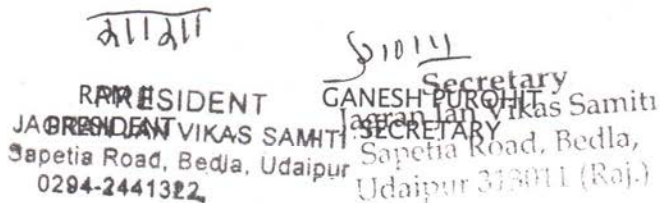 PRESIDENT
JAGRAN JAN VIKAS SAMITI
Sapetia Road, Bedla, Udaipur
0294-2441322
PRESIDENT
GANESH PUROHIT
SECRETARY
Secretary
Jagran Jan Vikas Samiti
Sapetia Road, Bedla,
Udaipur 313011 (Raj.)